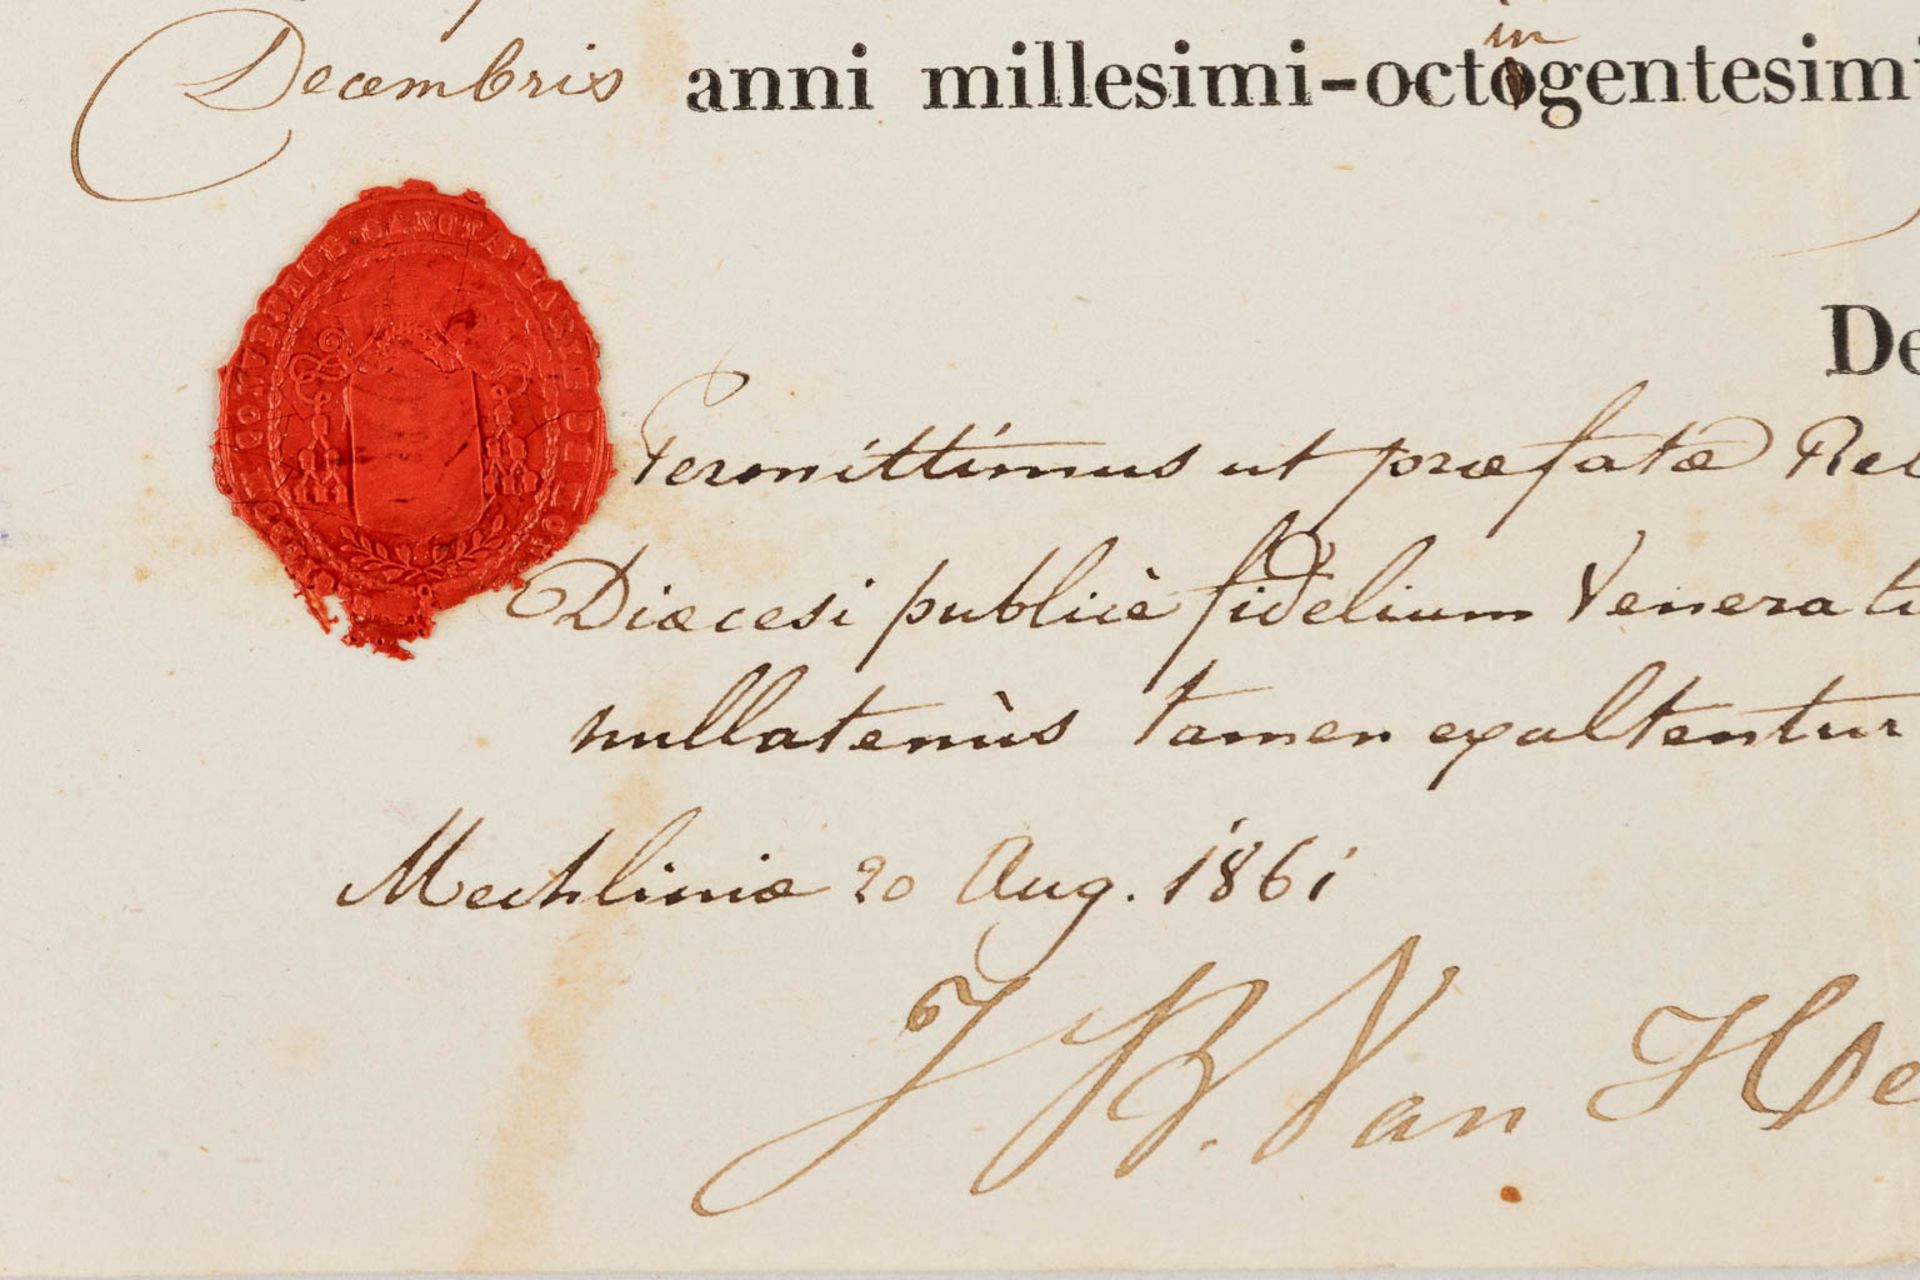 in
Decembris anni millesimi-octogentesimi
De
Permittimus ut præfatæ Rel
Diœcesi publicè fidelium Venerati
nullatenùs tamen exaltentur
Mechliniæ 20 Aug. 1861
J B. Van He